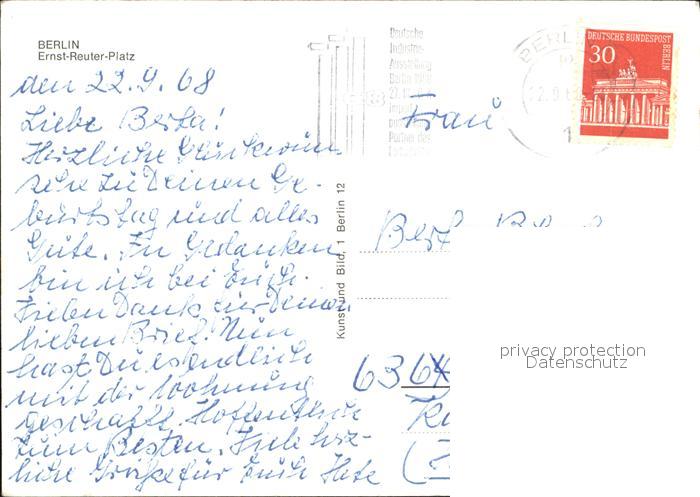 BERLIN
Ernst-Reuter-Platz
den 22.9.68
Liebe Berta!
Herzliche Glückwün
sche zu Deinen Ge-
burtstag und alles
Gute. In Gedanken
bin ich bei Euch.
Vielen Dank für Deinen
lieben Brief. Nun
hast Du es endlich
mit der Wohnung
geschafft. Hoffentlich
zum Besten. Viele herz-
liche Grüße für Euch
Kunst und Bild, 1 Berlin 12
Deutsche
Industrie-
Ausstellung
Berlin 1968
BERLIN
22.9.6
1
DEUTSCHE BUNDESPOST
BERLIN
30
Frau
636
privacy protection
Datenschutz